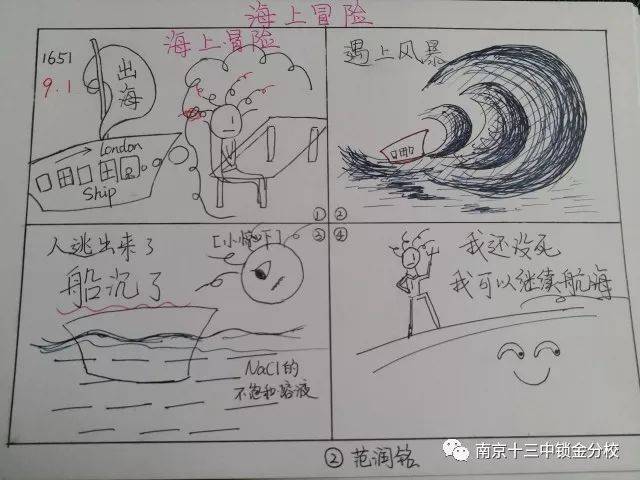 海上冒险
海上冒险
1651
9.1
出海
London
Ship
①
遇上风暴
②
人逃出来了
船沉了
③
NaCl的
不饱和溶液
④
我还没死
我可以继续航海
② 范润铭
南京十三中锁金分校